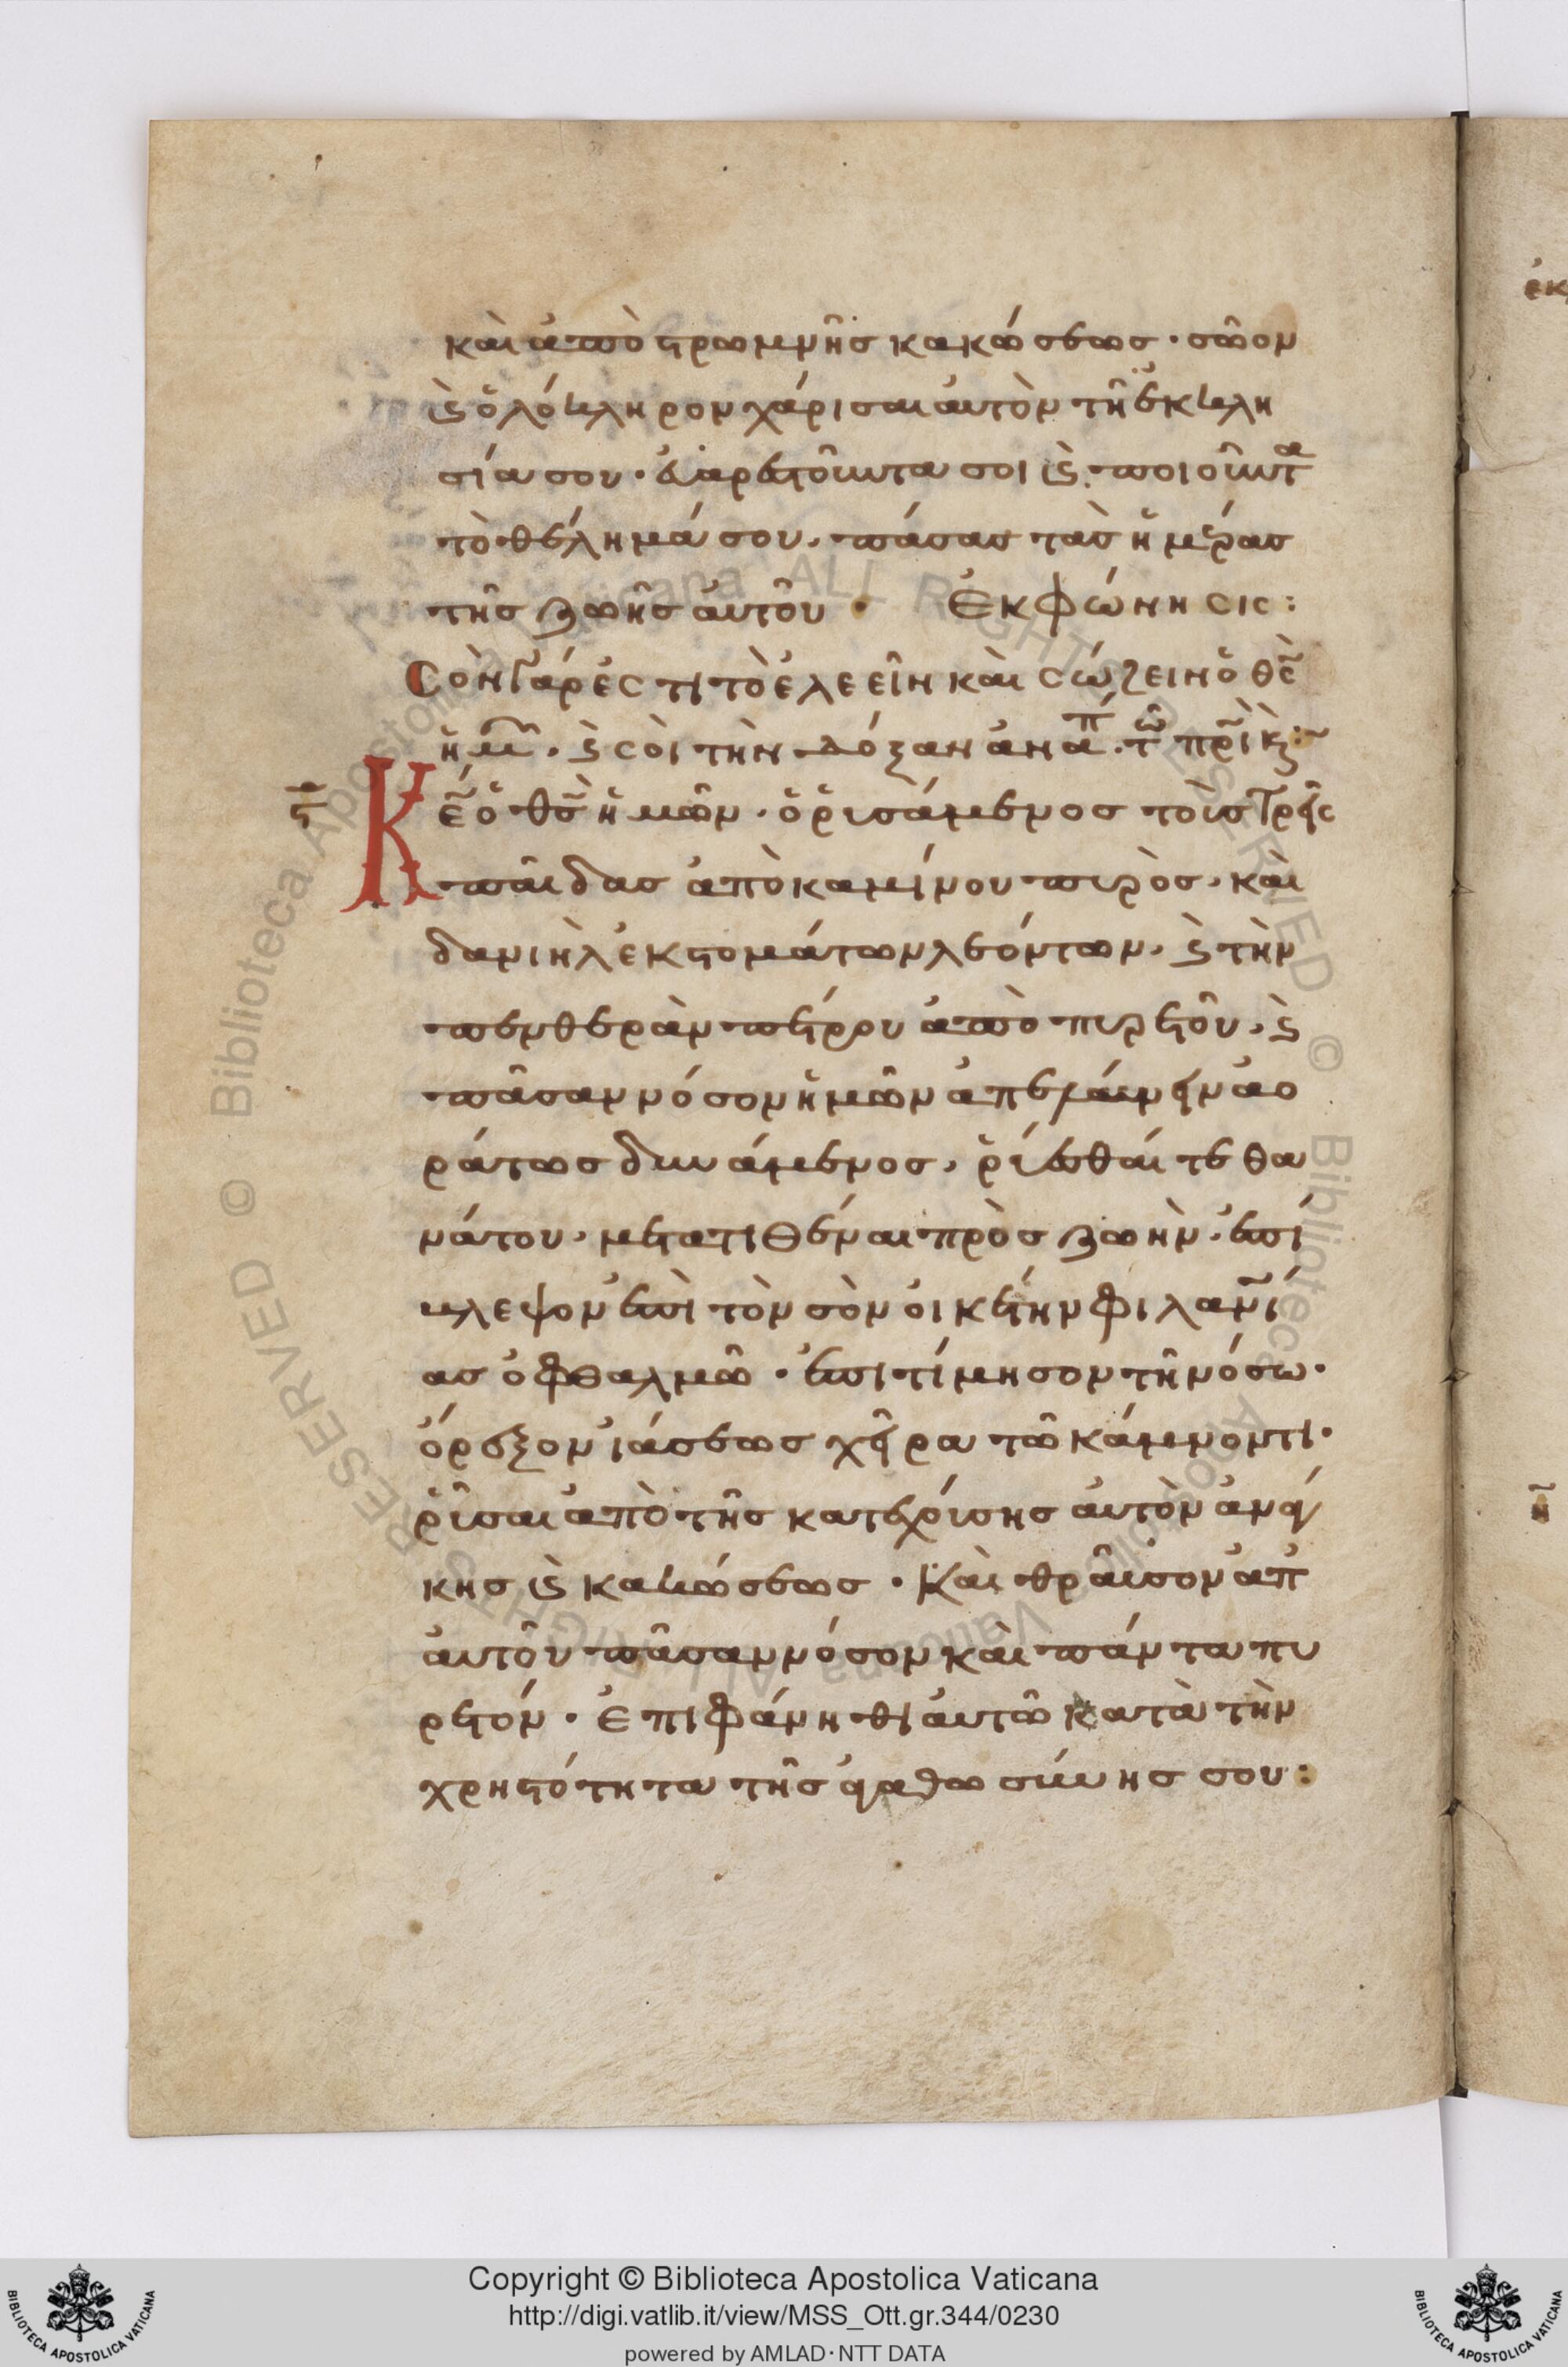 καὶ ἀπὸ στρωμνῆς κακώσεως · σῶον
ϗ ὁλόκληρον χάρισαι αὐτὸν τῆ ἐκκλη
σία σου · εὐαρεστοῦντα σοι ϗ ποιοῦντα
τὸ θέλημά σου, πάσας τὰς ἡμέρας
τῆς ζωῆς αὐτοῦ · Ἐκφώνησις :
Σὸν γάρ ἐστι τὸ ἐλεεῖν καὶ σώζειν ὁ θς
ἡμ · ϗ σοὶ τὴν δόξαν ἀναπ · τῶ πρὶ ϗ :
Κε ὁ θς ἡμῶν · ὁ ῥυσάμενος τοὺς τρεῖς
παῖδας ἀπὸ καμίνου πυρὸς, καὶ
δανιὴλ ἐκ στομάτων λεόντων, ϗ τὴν
πενθερὰν πέτρου ἀπὸ πυρετοῦ, ϗ
πᾶσαν νόσον ἡμῶν ἀπελαύνειν ἀο
ράτως δυνάμενος, ῥύεσθαί τε θα
νάτου, μετατιθέναι πρὸς ζωὴν, ἐπί
βλεψον ἐπὶ τὸν σὸν οἰκέτην φιλανί
ας ὀφθαλμῶ · ἐπιτίμησον τῆ νόσω ·
ὄρεξον ἰάσεως χεῖρα τῶ κάμνοντι ·
ῥῦσαι ἀπὸ τῆς κατεχούσης αὐτὸν ἀνάγ
κης ϗ κακώσεως · Καὶ θραῦσον ἀπ
αὐτοῦ πᾶσαν νόσον καὶ πάντα πυ
ρετόν · ἐπιφάνηθι αὐτῶ κατὰ τὴν
χρηστότητα τῆς ἀγαθωσύνης σου :
Copyright © Biblioteca Apostolica Vaticana
http://digi.vatlib.it/view/MSS_Ott.gr.344/0230
powered by AMLAD · NTT DATA